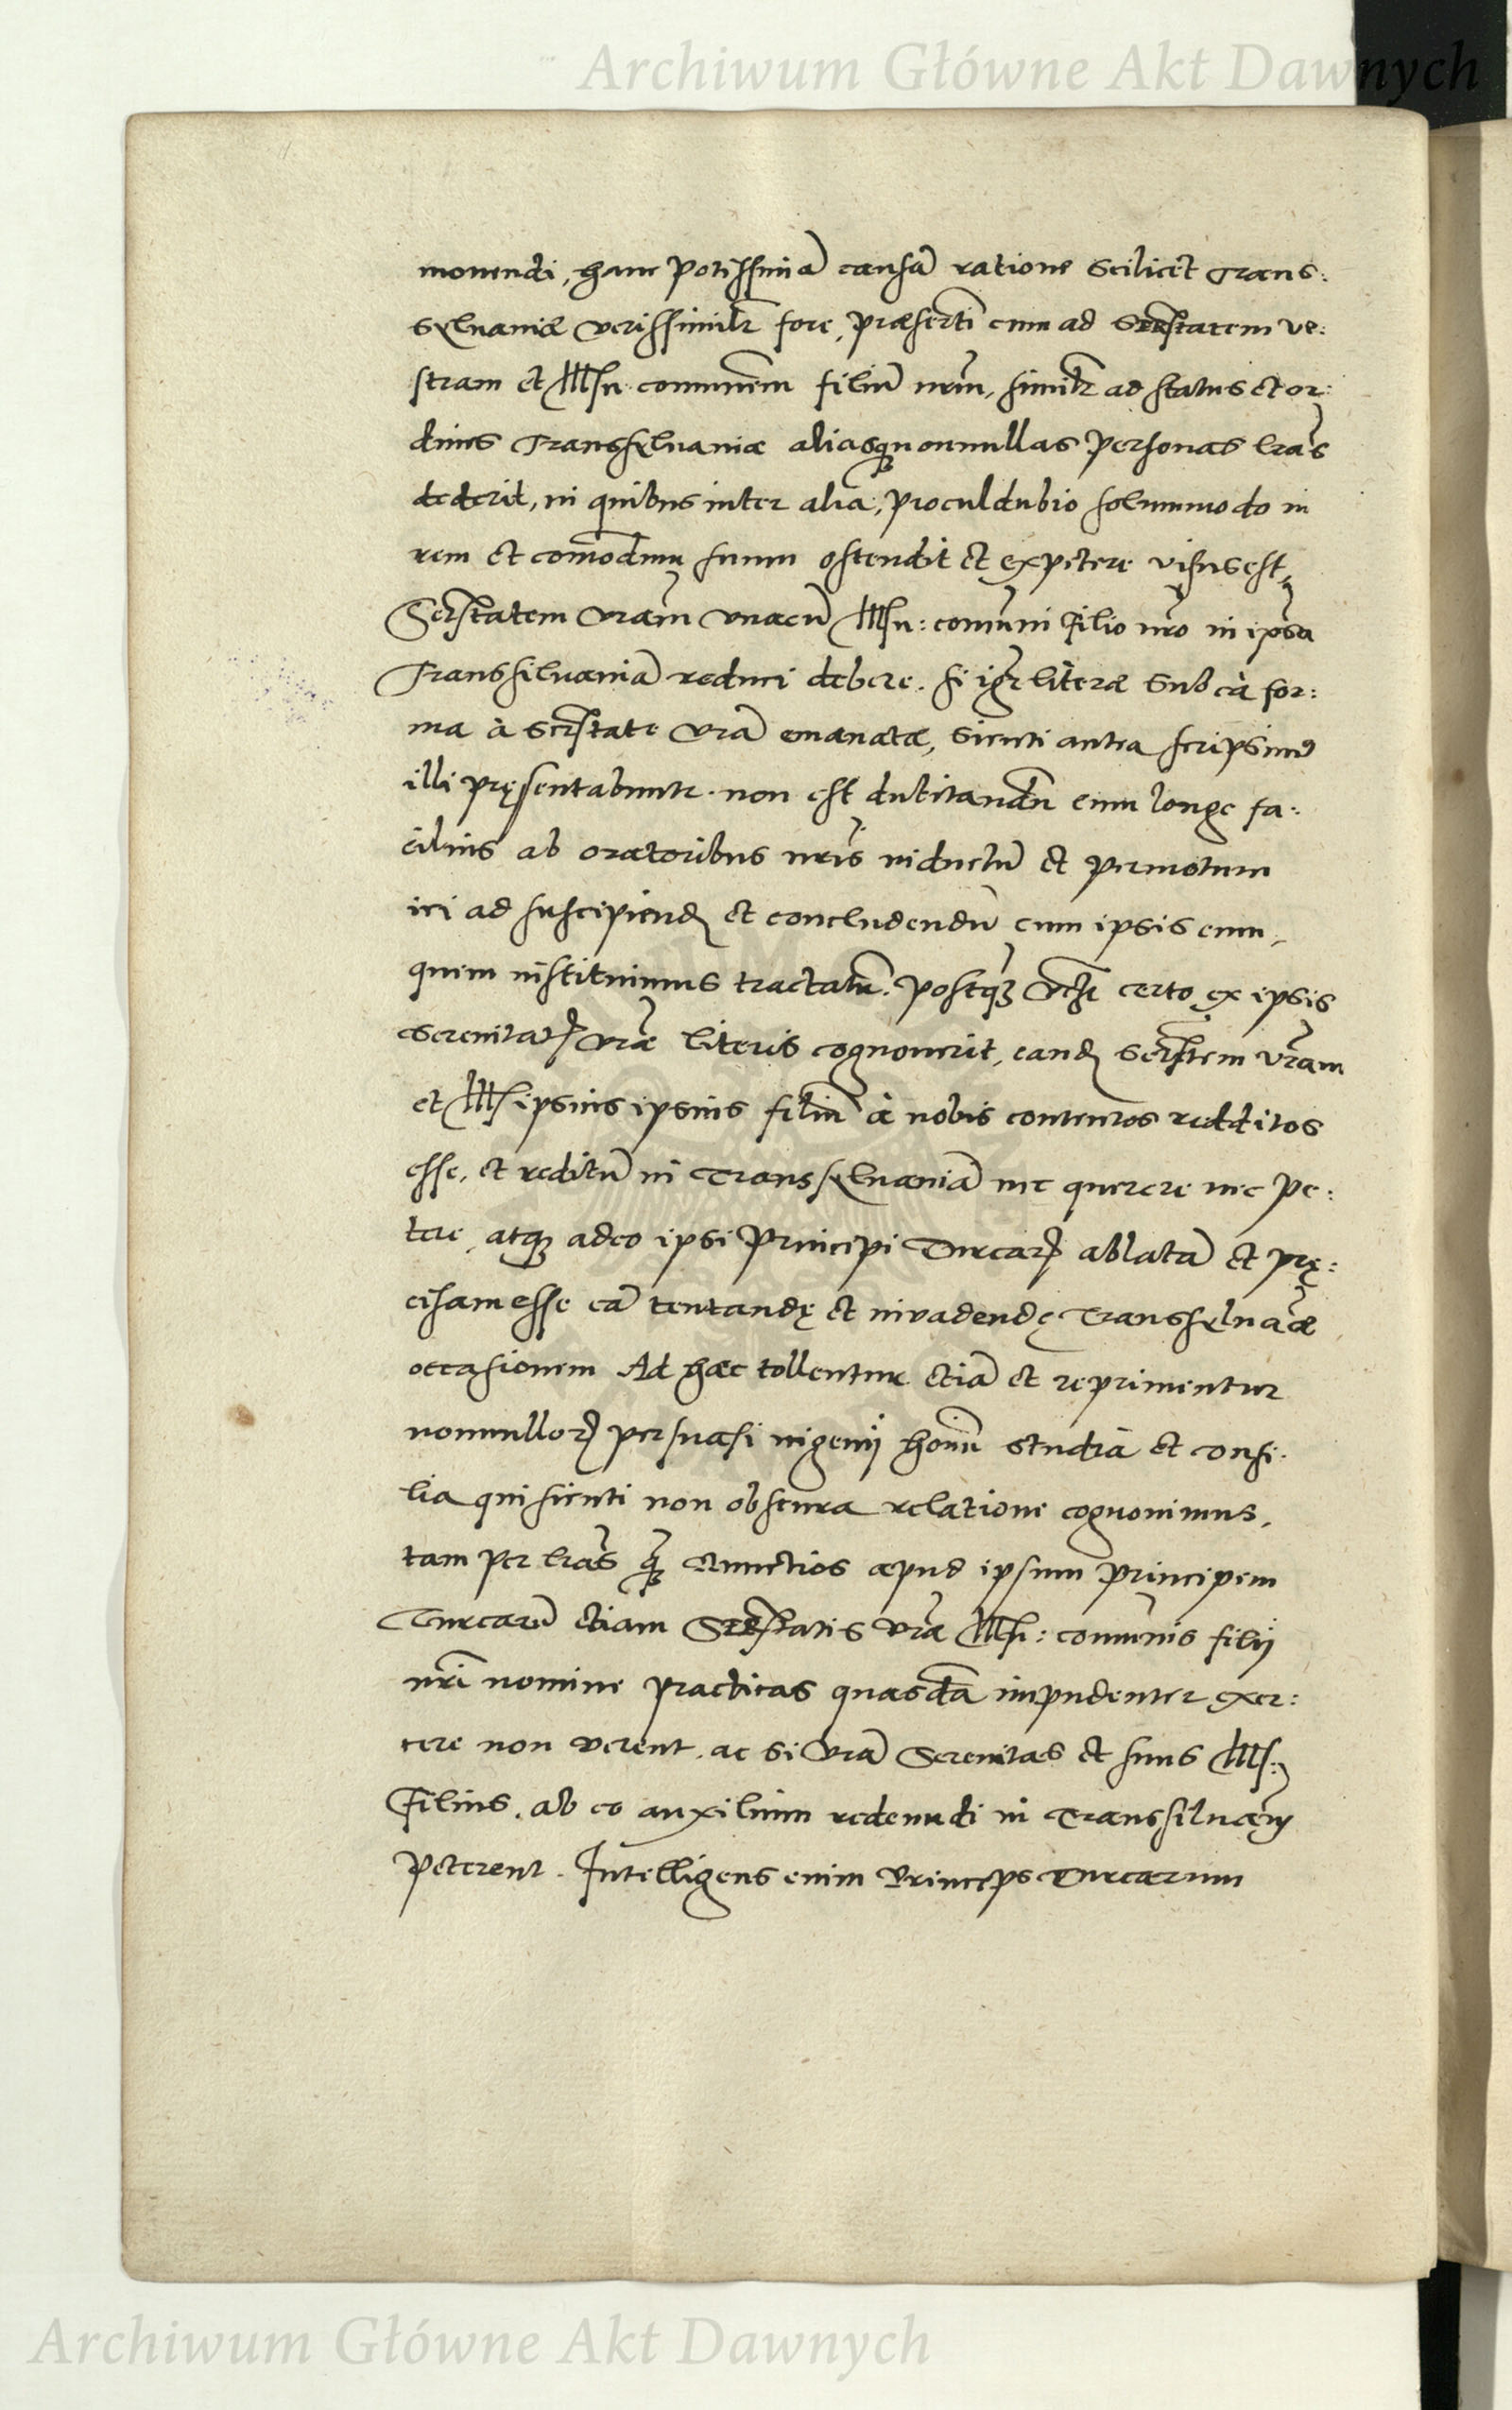 Archiwum Główne Akt Dawnych
mouendi, hanc potissimā causā ratione scilicet Trans:
sylvaniæ verissimilr fore, præsertī cum ad Serstatem ve:
stram et Illsn. communem filiū nrm̄, similr ad status et or:
dines Transsylvaniæ aliasq nonnullas personas lrās
dederit, in quibus inter alia, proculdubio solummodo in
rem et com̄odum suum ostendit et expetere visus est,
Serstatem vram̄ vnacū Illsn: com̄uni filio nr̄o in ipsā
Transsilvaniā reduci debere. Si igr̄ literæ sub eà for:
ma à Serstate vrā emanatæ, sicuti antea scripsimus
illi pręsentabuntr. non est dubitandū eum longe fa:
cilius ab oratoribus nrīs inductū et permotum
iri ad suscipiend et concludendū cum ipsis eum,
quem instituimus tractatū. Postq̄ certo ex ipsis
Serenitatis vrǣ literis cognouerit, eand Serstem vr̄am
et Ills ipsius ipsius filiū à nobis contentos redditos
esse, et reditū in Transsylvaniā nec querere nec pe:
tere, atq adeo ipsi Principi Turcar ablatā et prę:
cisam esse eā tentandę et invadendę Transsylvāæ
occasionem Ad hæc tollentur etiā et reprimentur
nonnullor persuasi ingenij homū studia et consi:
lia qui sicuti non obscura relatione cognouimus,
tam per lrās q̄ Nunctios apud ipsum Principem
Turcarū etiam Serstatis vrǣ Illsi: com̄unis filij
nrī nomine practicas quasdā impudenter exer:
cere non verent. ac si vrā Serenitas et suus Ills:
Filius. ab eo auxilium redeundi in Transsilvam̄
peterent. Intelligens enim Princeps Turcarum
Archiwum Główne Akt Dawnych